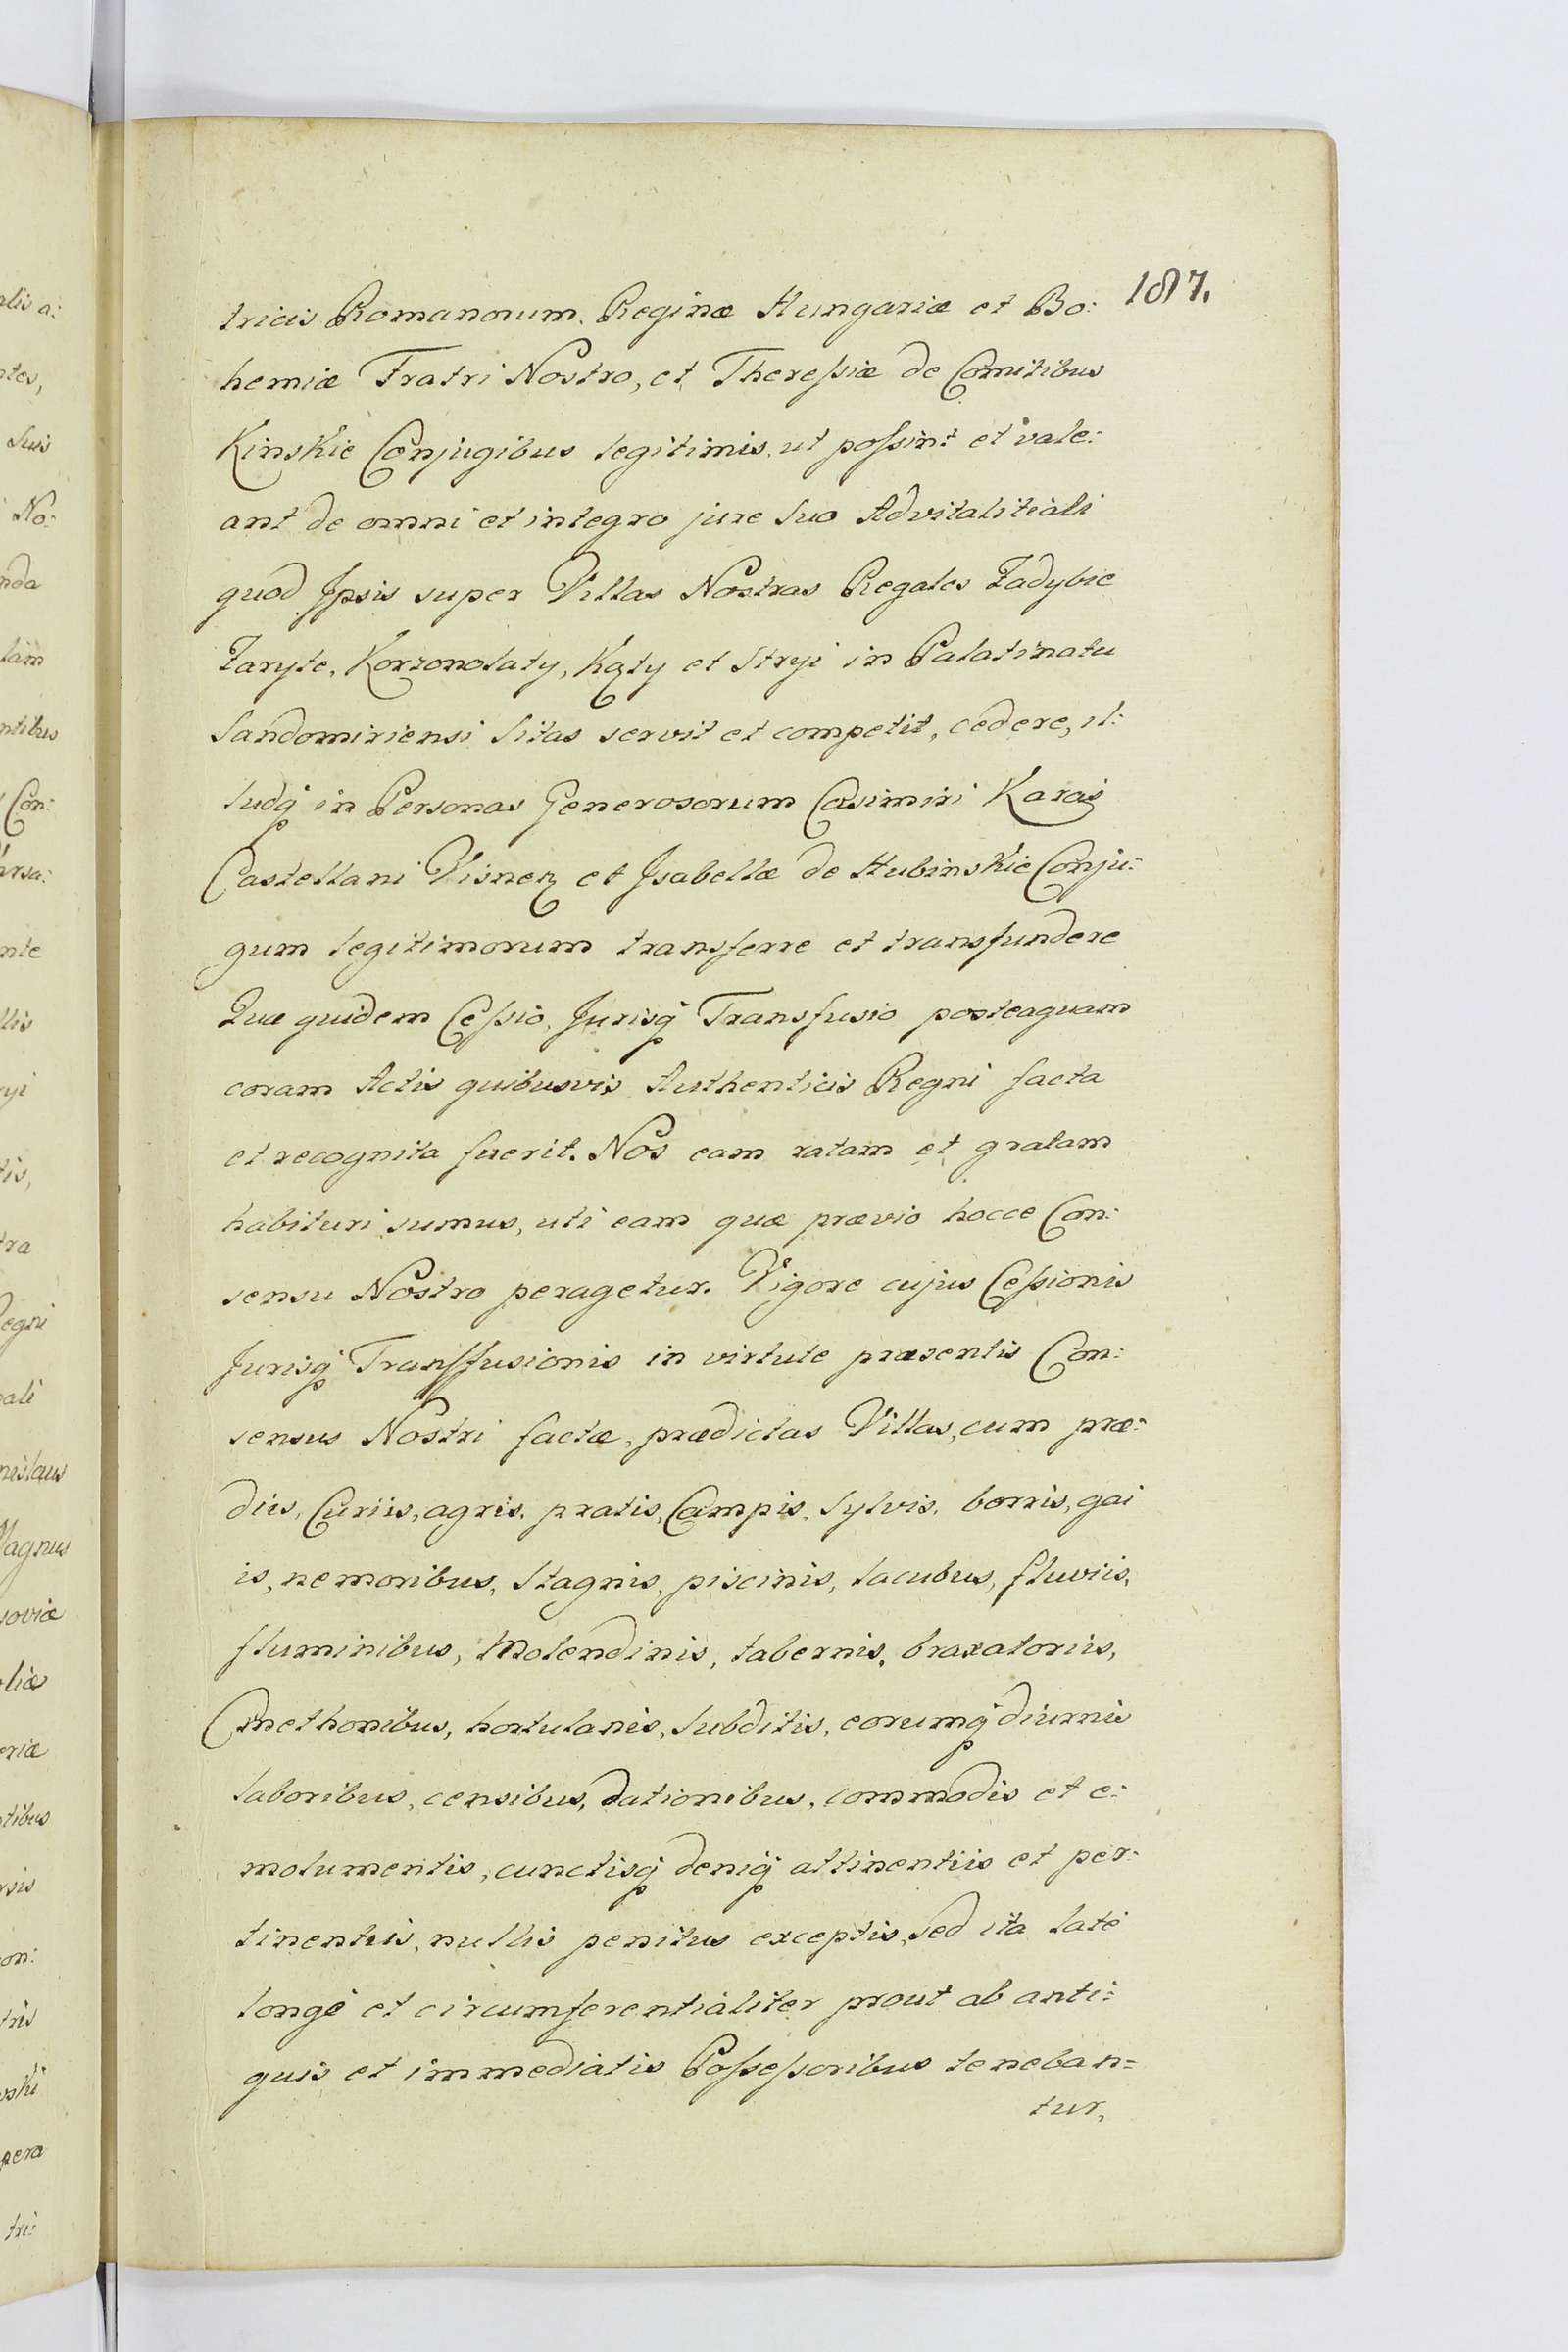 187.
tricis Romanorum. Reginæ Hungariæ et Bo:
hemiæ Fratri Nostro, et Theressiæ de Comitibus
Kinskie Conjugibus legitimis, ut possint et vale:
ant de omni et integro jure suo Advitalitiali
quod Jpsis super Villas Nostras Regales Zadybie
Zaryte, Korzonolaty, Kąty et Stryi in Palatinatu
Sandomiriensi sitas servit et competit, cedere, il:
ludq in Personas Generosorum Casimiri Karaś
Castellani Visnen et Jsabellæ de Hubinskie Conju:
gum legitimorum transferre et transfundere
Quæ quidem Cessio, Jurisq Transfusio posteaquam
coram Actis quibusvis Authenticis Regni facta
et recognita fuerit. Nos eam ratam et gratam
habituri sumus, uti eam quæ prævio hocce Con:
sensu Nostro peragetur. Vigore cujus Cessionis
Jurisq Transfusionis in virtute præsentis Con:
sensus Nostri factæ, prædictas Villas, cum præ:
diis, Curiis, agris, pratis, Campis, Sylvis, borris, gai
is, nemoribus, Stagnis, piscinis, lacubus, fluviis,
fluminibus, Molendinis, tabernis, braxatoriis,
Cmethonibus, hortulanis, Subditis, eorumq diurnis
laboribus, censibus, dationibus, commodis et e:
molumentis, cunctisq deniq attinentiis et per:
tinentiis, nullis penitus exceptis, sed ita laté
longé et circumferentialiter prout ab anti:
quis et immediatis Possessoribus teneban=
tur,